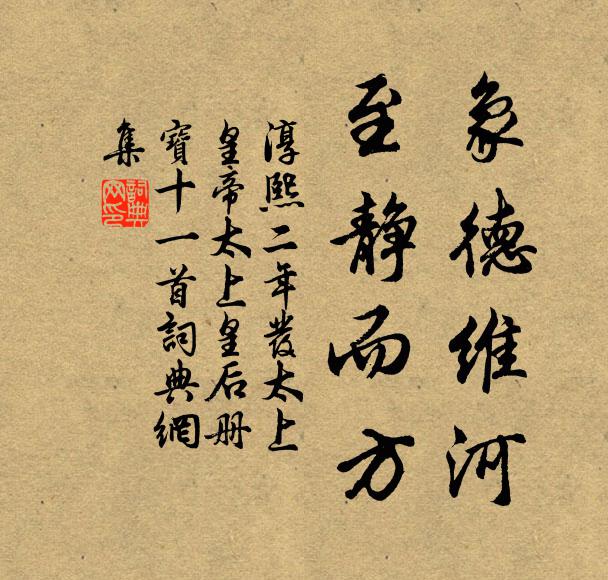 象德維河
至靜而方
淳熙二年發太上
皇帝太上皇后册
寶十一首詞典網
集
詞典
网印